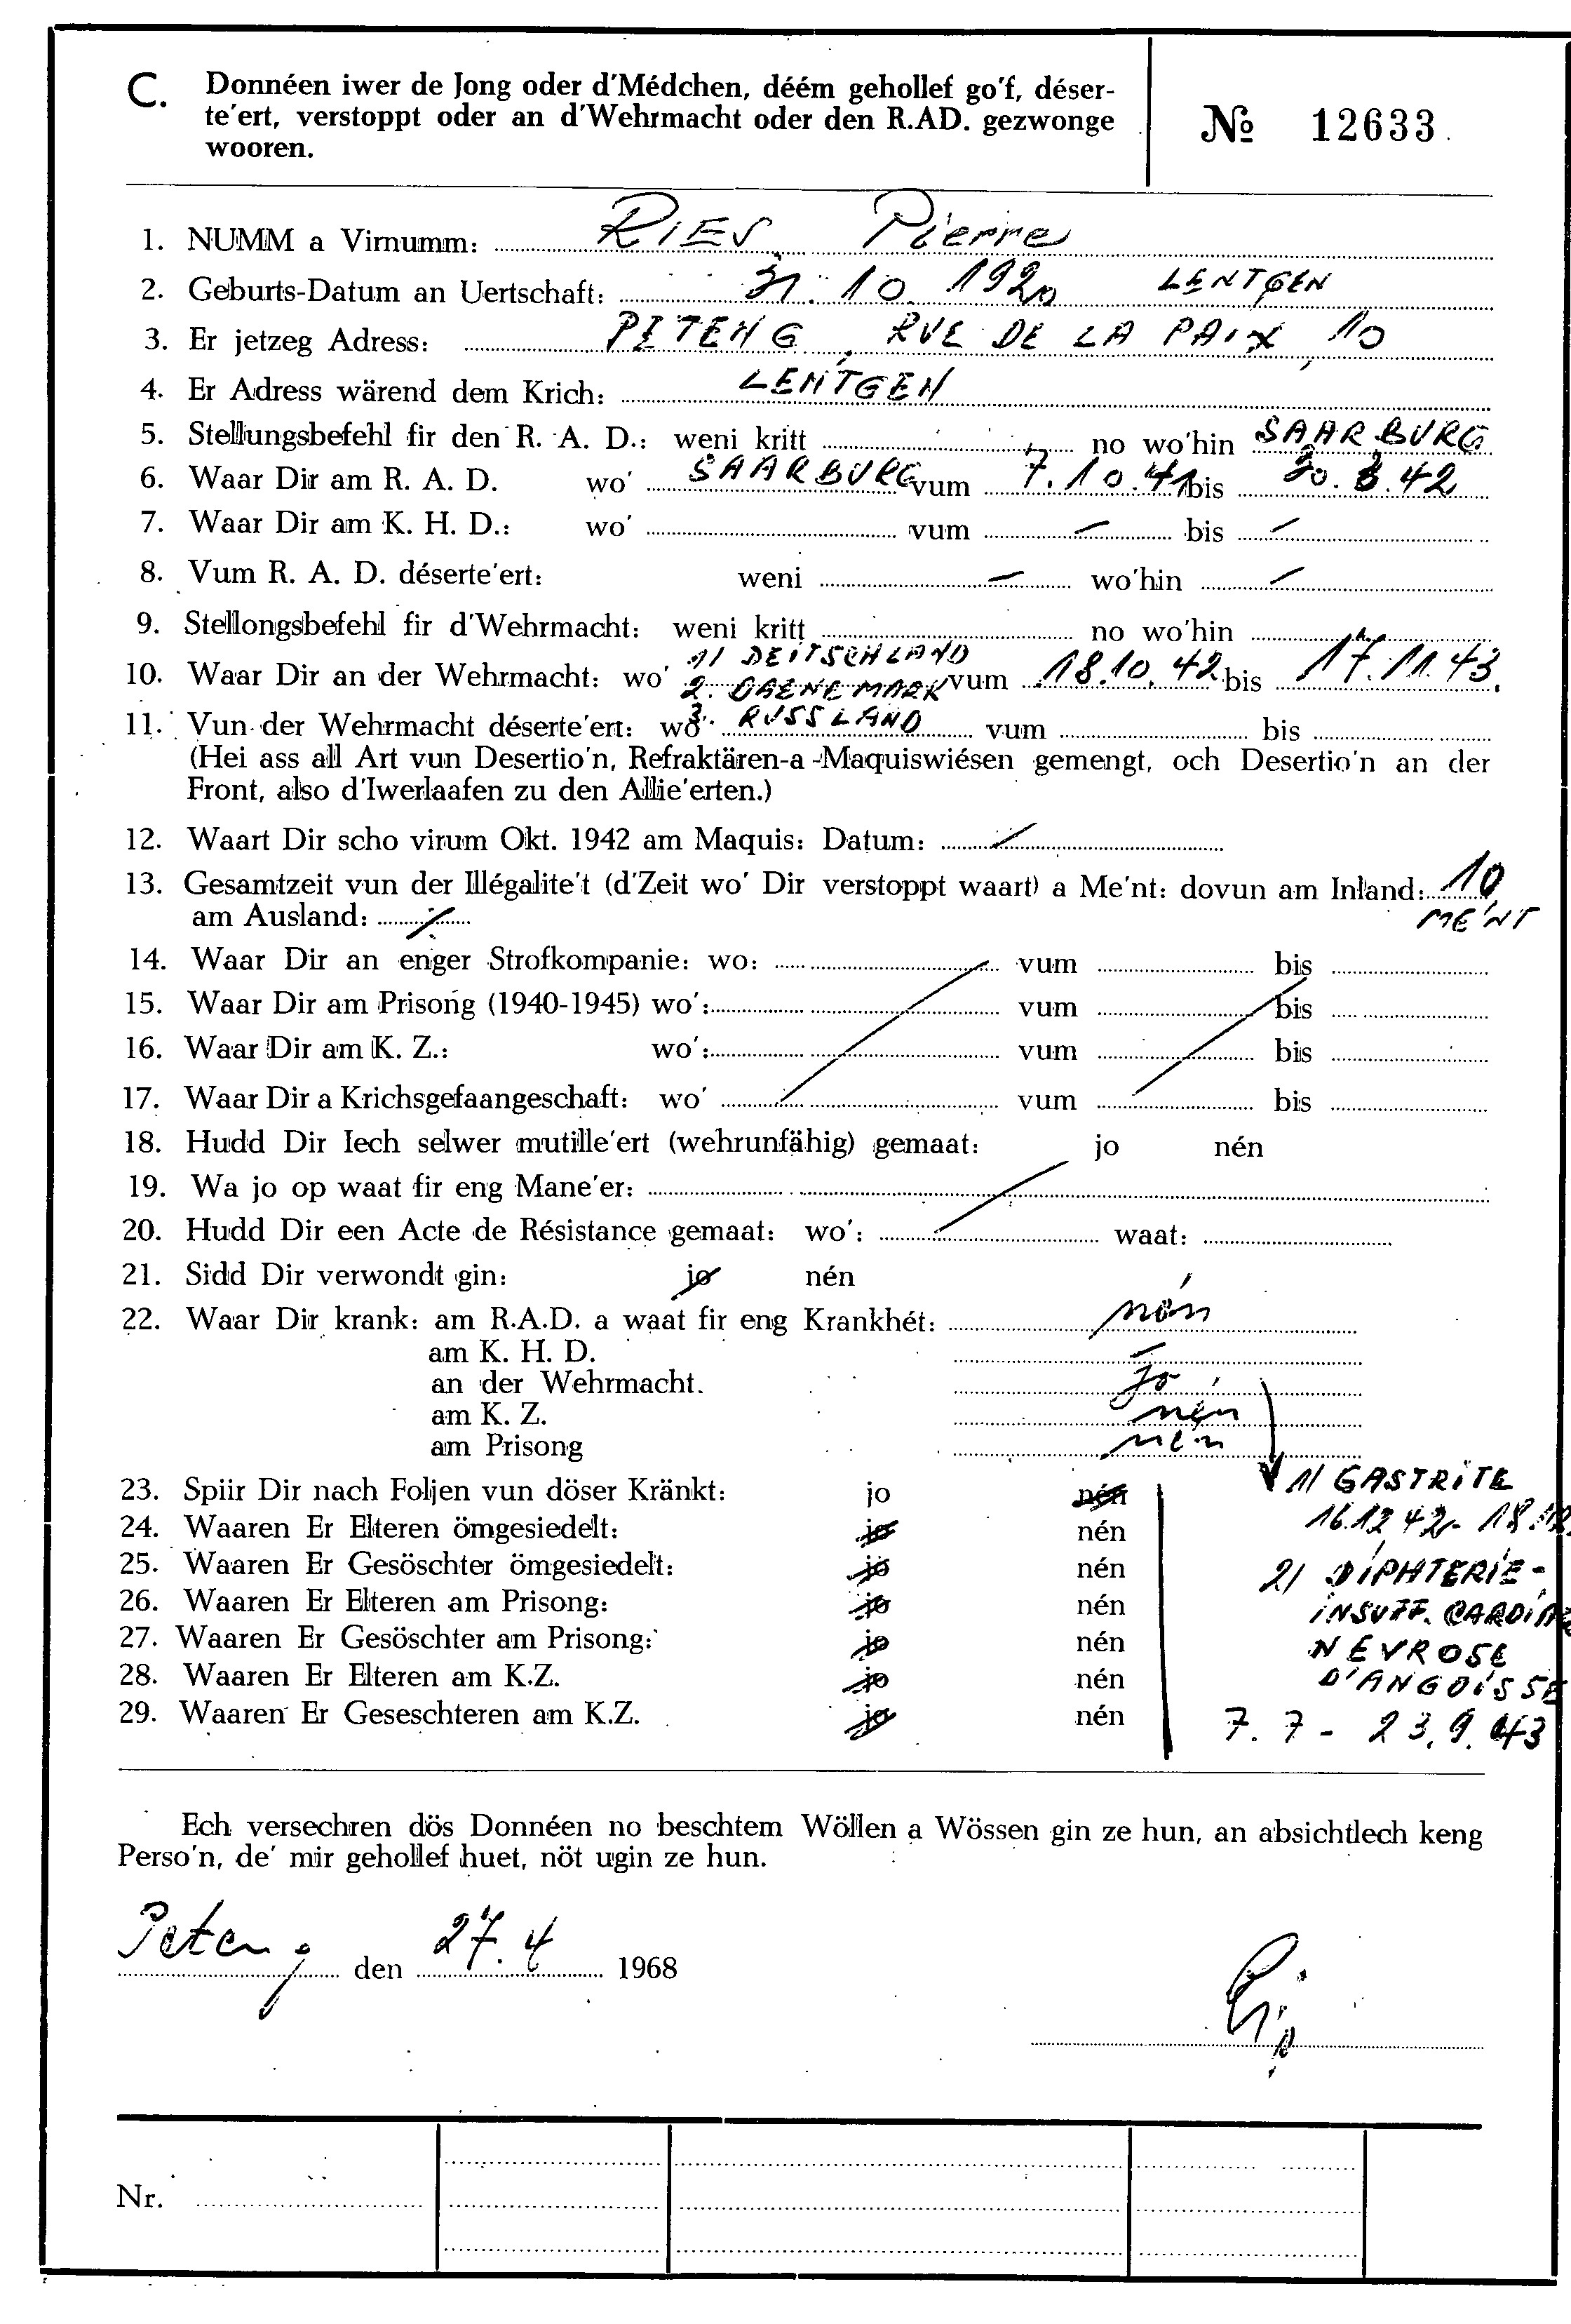 C. Donnéen iwer de Jong oder d'Médchen, déém gehollef go'f, déser-
te'ert, verstoppt oder an d'Wehrmacht oder den R.AD. gezwonge
wooren.
№ 12633
1. NUMM a Virnumm: RIES Pierre
2. Geburts-Datum an Uertschaft: 31. 10. 1920 LENTGEN
3. Er jetzeg Adress: PETENG, RUE DE LA PAIX, 10
4. Er Adress wärend dem Krich: LENTGEN
5. Stellungsbefehl fir den R. A. D.: weni kritt no wo'hin SAARBURG
6. Waar Dir am R. A. D. wo' SAARBURG vum 7.10.41 bis 30. 3. 42
7. Waar Dir am K. H. D.: wo' vum — bis —
8. Vum R. A. D. déserte'ert: weni — wo'hin —
9. Stellongsbefehl fir d'Wehrmacht: weni kritt no wo'hin
1/ DEITSCHLAND
10. Waar Dir an der Wehrmacht: wo' 2. DAENEMARK vum 18.10.42 bis 17.11.43.
11. Vun der Wehrmacht déserte'ert: wo' 3. RUSSLAND vum bis
(Hei ass all Art vun Desertio'n, Refraktären-a-Maquiswiésen gemengt, och Desertio'n an der
Front, also d'Iwerlaafen zu den Allie'erten.)
12. Waart Dir scho virum Okt. 1942 am Maquis: Datum: /
13. Gesamtzeit vun der Illégalite't (d'Zeit wo' Dir verstoppt waart) a Me'nt: dovun am Inland: 10
am Ausland: / ME'NT
14. Waar Dir an enger Strofkompanie: wo: vum bis
15. Waar Dir am Prisong (1940-1945) wo': vum bis
16. Waar Dir am K. Z.: wo': vum bis
17. Waar Dir a Krichsgefaangeschaft: wo' vum bis
18. Hudd Dir Iech selwer mutille'ert (wehrunfähig) gemaat: jo nén
19. Wa jo op waat fir eng Mane'er:
20. Hudd Dir een Acte de Résistance gemaat: wo': waat:
21. Sidd Dir verwondt gin: jo nén
22. Waar Dir krank: am R.A.D. a waat fir eng Krankhét: nén
am K. H. D. —
an der Wehrmacht. jo
am K. Z. nén
am Prisong nén
23. Spiir Dir nach Foljen vun döser Kränkt: jo nén
24. Waaren Er Elteren ömgesiedelt: jo nén
25. Waaren Er Gesöschter ömgesiedelt: jo nén
26. Waaren Er Elteren am Prisong: jo nén
27. Waaren Er Gesöschter am Prisong: jo nén
28. Waaren Er Elteren am K.Z. jo nén
29. Waaren Er Geseschteren am K.Z. jo nén
1/ GASTRITE
16.12 42 - 18.12
2/ DIPHTERIE -
INSUFF. CARDIAC
NEVROSE
D'ANGOISSE
7. 7 - 23. 9. 43
Ech versechren dös Donnéen no beschtem Wöllen a Wössen gin ze hun, an absichtlech keng
Perso'n, de' mir gehollef huet, nöt ugin ze hun.
Peteng den 27. 4 1968
Nr.